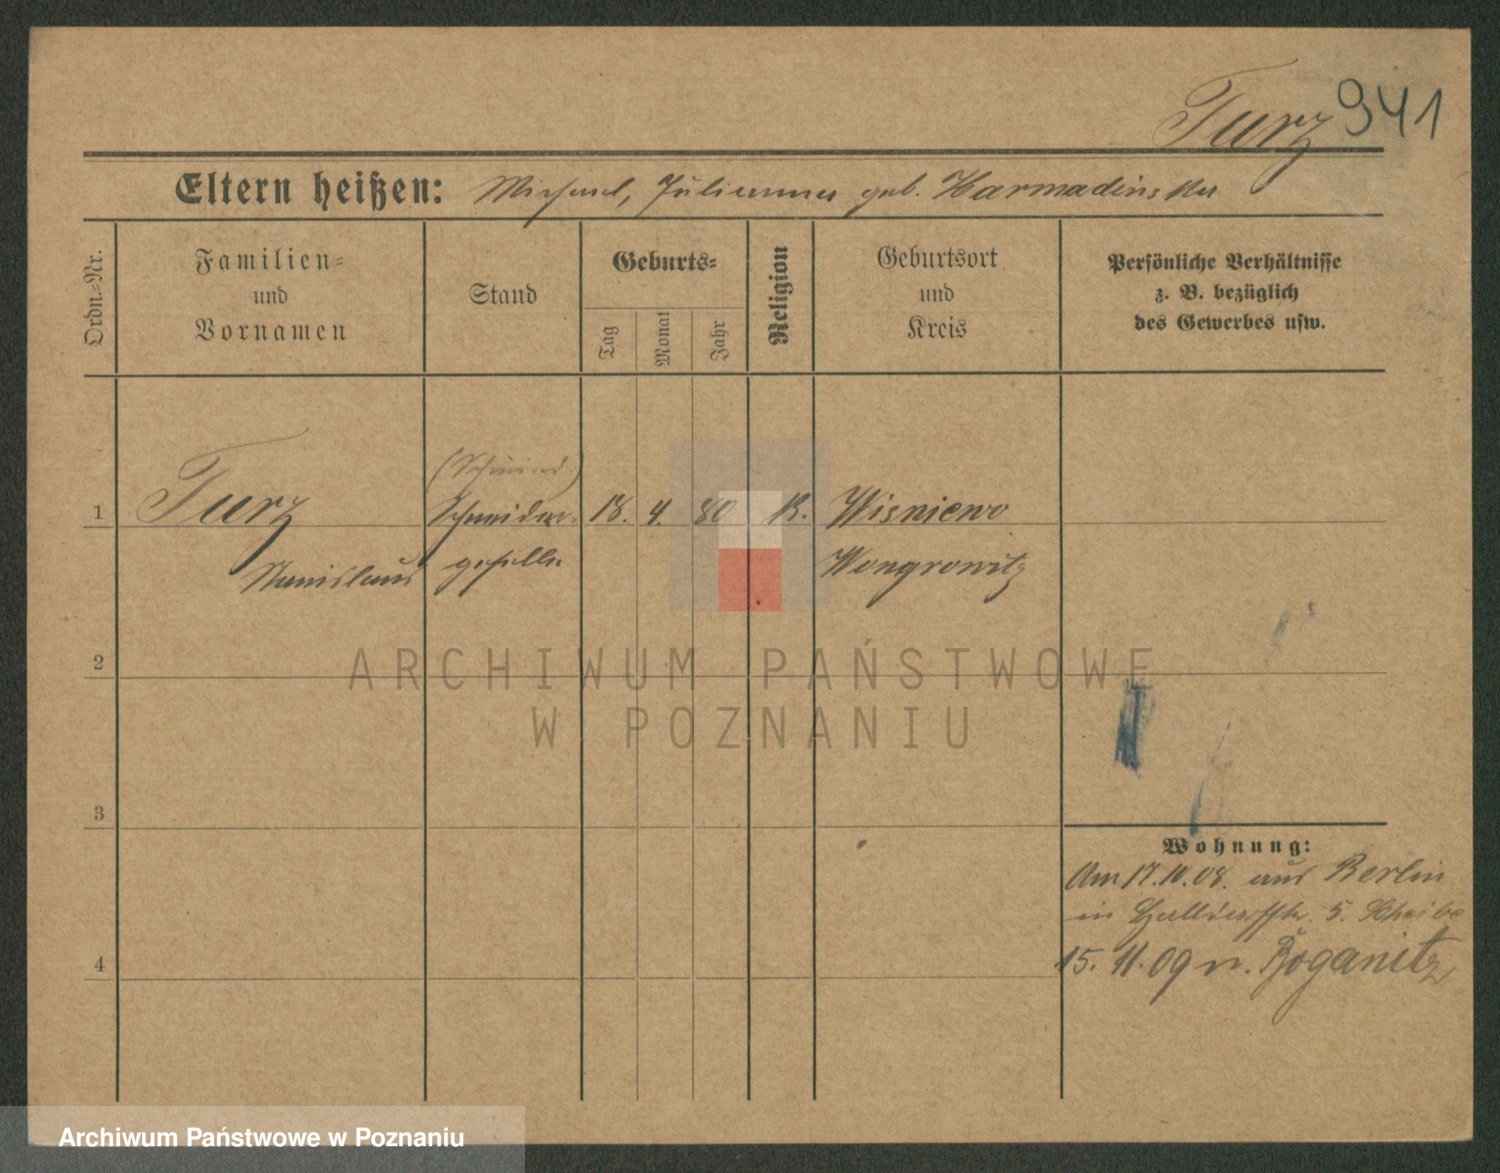 Turz 941
Eltern heißen: Michael, Julianna geb. Karmadinska
Ordn.-Nr.
Familien-
und
Vornamen
Stand
Geburts-
Tag
Monat
Jahr
Religion
Geburtsort
und
Kreis
Persönliche Verhältnisse
z. B. bezüglich
des Gewerbes usw.
1 Turz Schneider- 18. 4. 80 K. Wisniewo
Stanislaus geselle Wongrowitz
2
ARCHIWUM PAŃSTWOWE
W POZNANIU
3
Wohnung:
Am 17.10.08. aus Berlin
in 5.
4 15. 11. 09 n. Roganitz
Archiwum Państwowe w Poznaniu